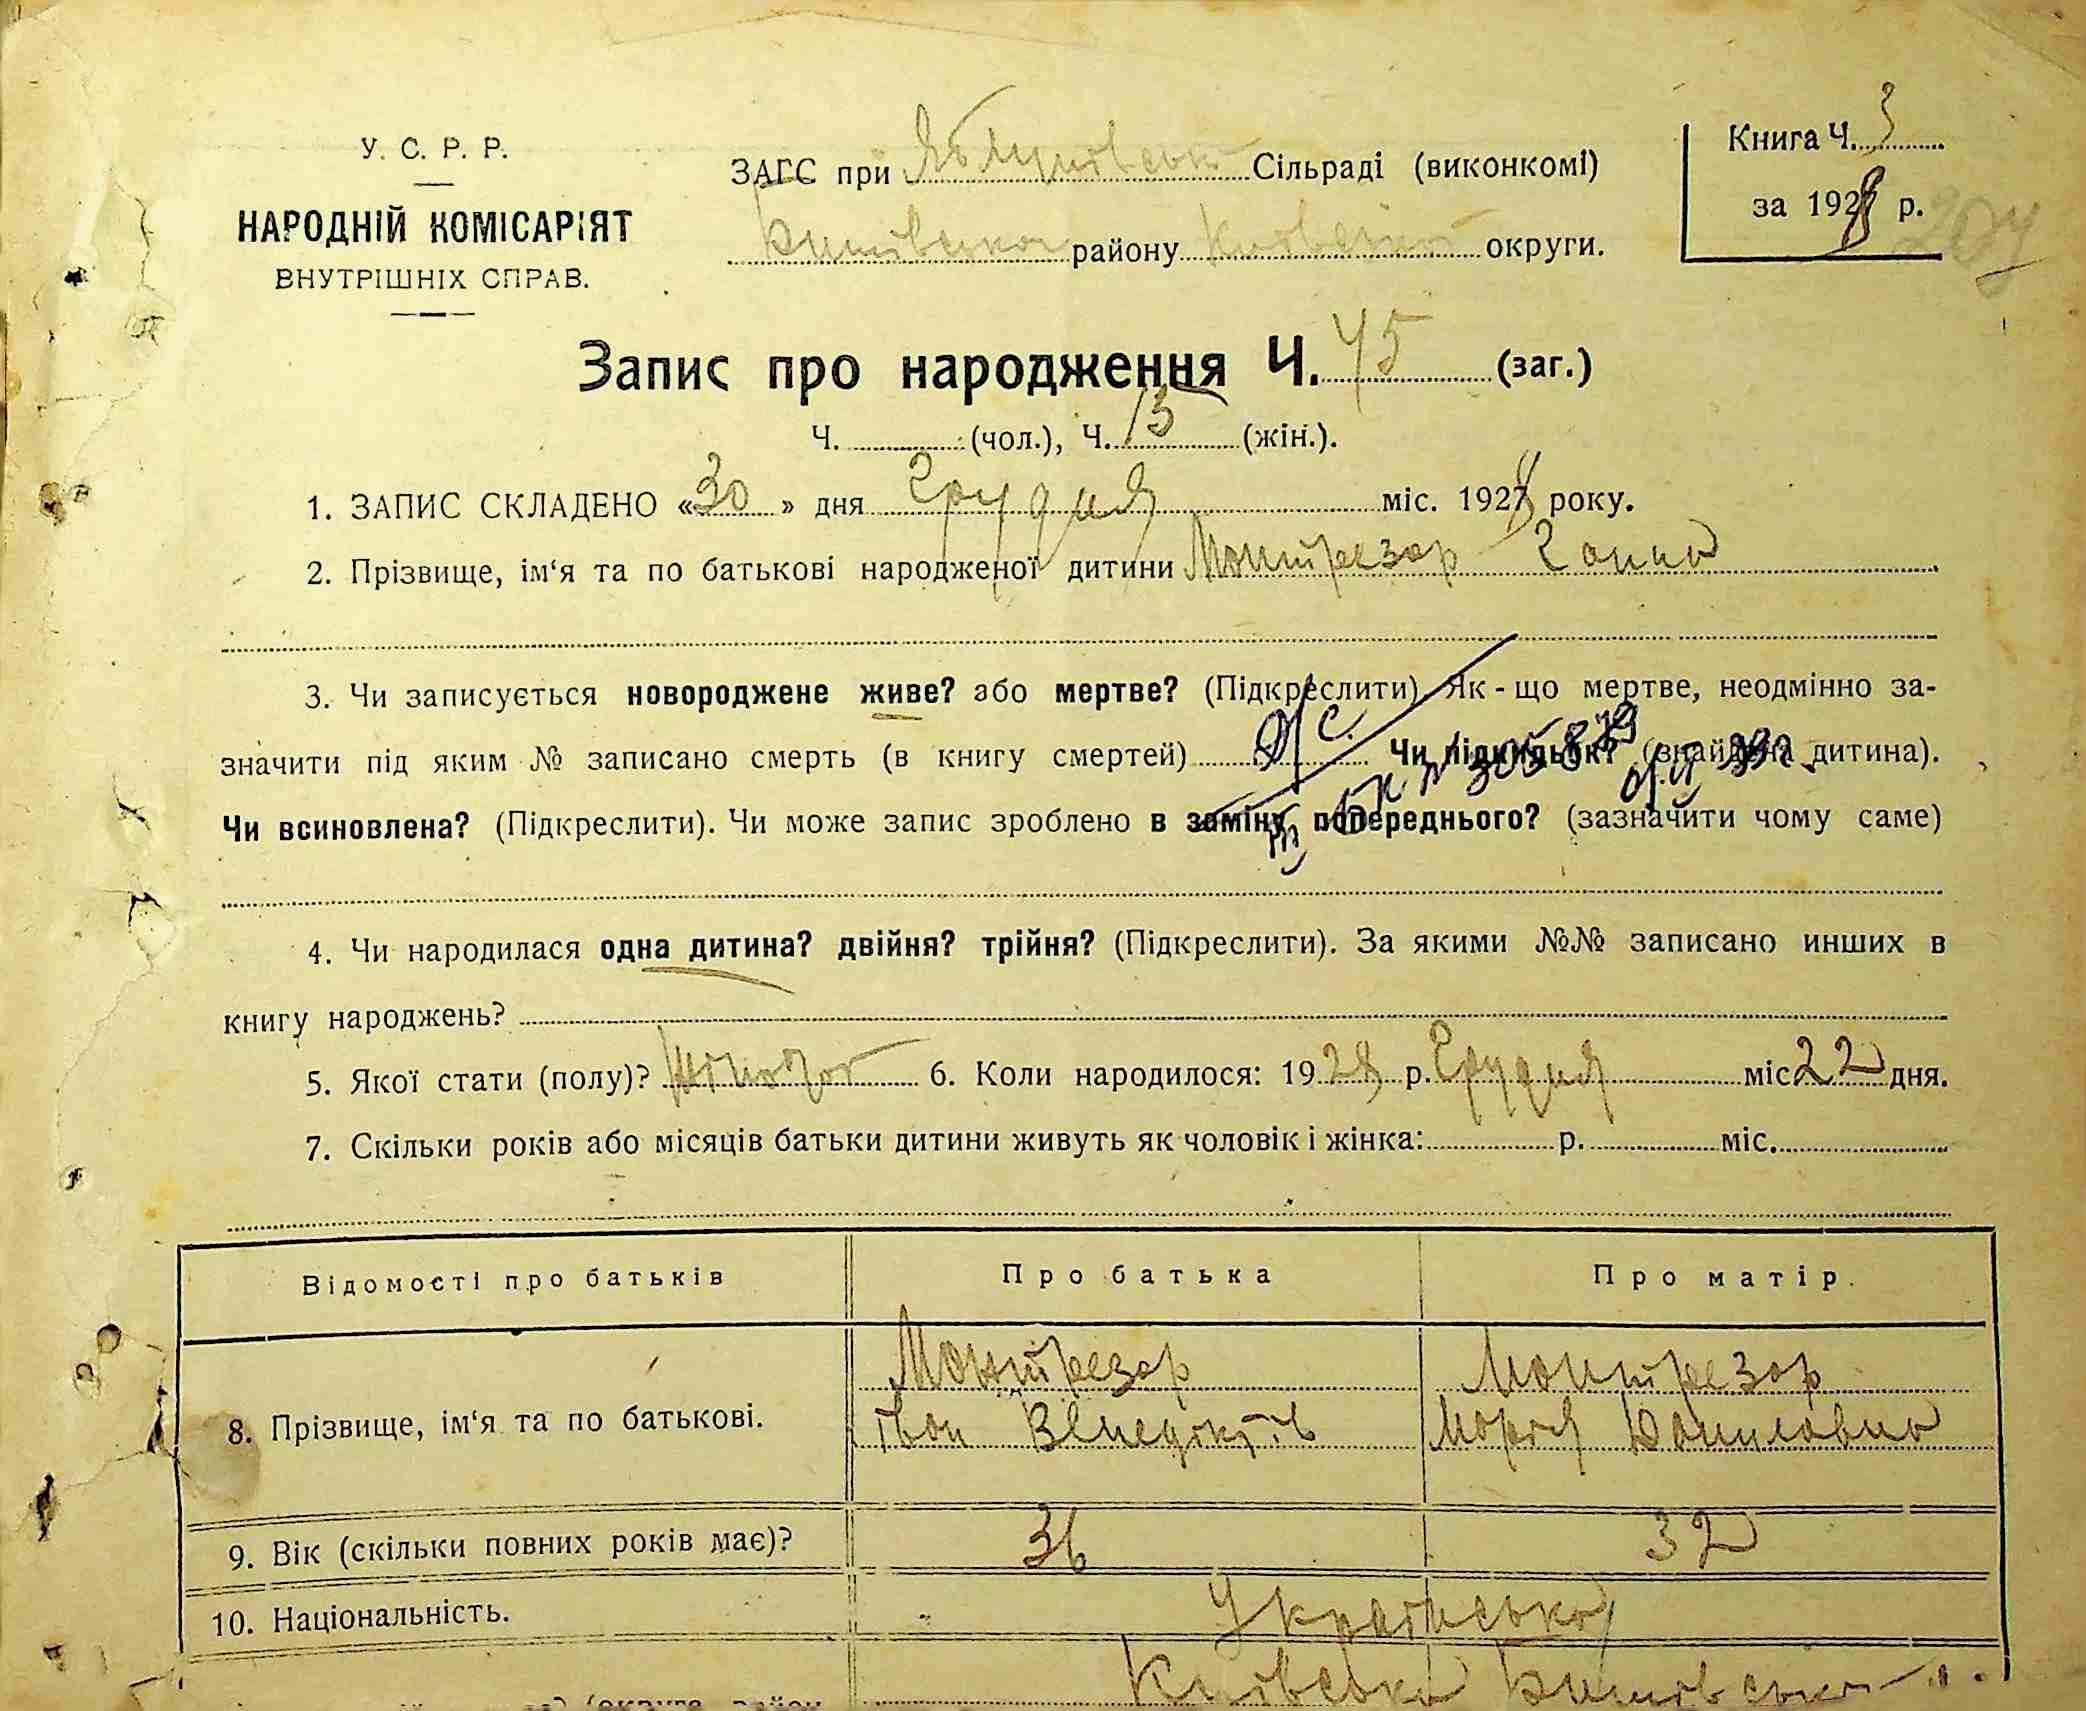 У. С. Р. Р.
НАРОДНІЙ КОМІСАРІЯТ
ВНУТРІШНІХ СПРАВ.
ЗАГС при Яблунівськ Сільраді (виконкомі)
району Київської округи.
Книга Ч. 3
за 1928 р.
Запис про народження Ч. 45 (заг.)
Ч. (чол.), Ч. 15 (жін.).
1. ЗАПИС СКЛАДЕНО «30» дня Грудня міс. 1928 року.
2. Прізвище, ім‘я та по батькові народженої дитини Монтрезор Ганна
3. Чи записується новороджене живе? або мертве? (Підкреслити). Як-що мертве, неодмінно за-
значити під яким № записано смерть (в книгу смертей) Чи підкидьок? (знайдена дитина).
Чи всиновлена? (Підкреслити). Чи може запис зроблено в заміну попереднього? (зазначити чому саме)
4. Чи народилася одна дитина? двійня? трійня? (Підкреслити). За якими №№ записано инших в
книгу народжень?
5. Якої стати (полу)? Жіночої 6. Коли народилося: 1928 р. Грудня міс 22 дня.
7. Скільки років або місяців батьки дитини живуть як чоловік і жінка: р. міс.
Відомості про батьків Про батька Про матір.
Монтрезор Монтрезор
8. Прізвище, ім‘я та по батькові. Іван Венедіктів Марія Даниловна
9. Вік (скільки повних років має)? 36 32
10. Національність. Українська
Київська